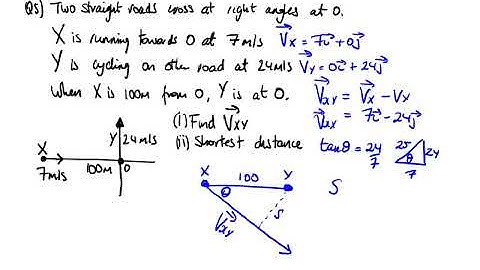 Q5) Two straight roads cross at right angles at O.
X is running towards O at 7m/s
Y is cycling on other road at 24m/s
When X is 100m from O, Y is at O.
(i) Find V⃗xy
(ii) Shortest distance
V⃗x = 7i⃗ + 0j⃗
V⃗y = 0i⃗ + 24j⃗
V⃗xy = V⃗x - Vy
V⃗xy = 7i⃗ - 24j⃗
tanθ = 24/7
25
24
θ
7
Y
24m/s
X
7m/s
100m
O
X
100
Y
θ
S
V⃗xy
S